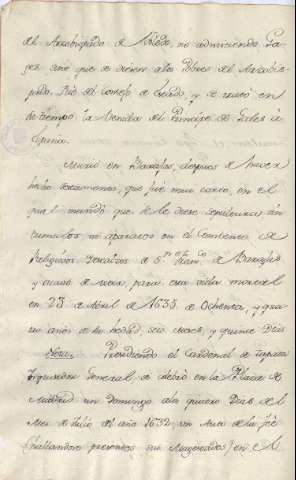 del Arzobispado de Toledo, no admitiendo Ga-
ges sino que se diesen a los Pobres del Arzobis-
pado. Fue del Consejo de Estado, y se trató en
su tiempo la Venida del Principe de Gales a
España.
Murió en Barajas, despues de haver
hecho testamento, que fue muy corto, en el
qual mandó que se le diese sepultura sin
tumulo ni aparato en el Convento de
Religiosos Descalzos de Sn. Franco. de Barajas
en 23 de Abril de 1635 de Ochenta, y qua-
tro años de su hedad, seis meses, y quince Dias
Nota: Presidiendo el Cardenal de Zapata
Inquisidor General, se celebró en la Plaza de
Madrid un Domingo a los quatro Dias de el
Mes de Julio del año 1632 un Auto de la fee
(hallandose presentes sus Magestades) en el